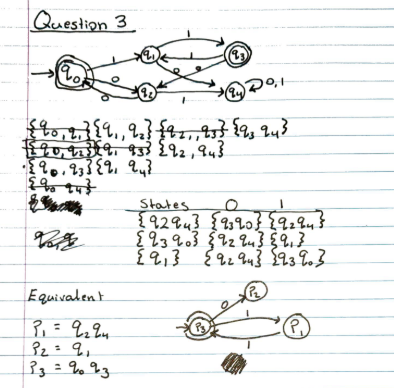 Question 3
1
q1 1 q3
1
q0 1 0 0
0 q2 1 q4 0,1
0
{q0,q1} {q1,q2} {q2,q3} {q3 q4}
{q0,q2} {q1 q3} {q2,q4}
{q0,q3} {q1 q4}
{q0 q4}
States 0 1
{q2q4} {q3q0} {q2q4}
{q3q0} {q2q4} {q1}
{q1} {q2q4} {q3q0}
Equivalent
P1 = q2q4
P2 = q1
P3 = q0q3
P2
0
P3 1 P1
1